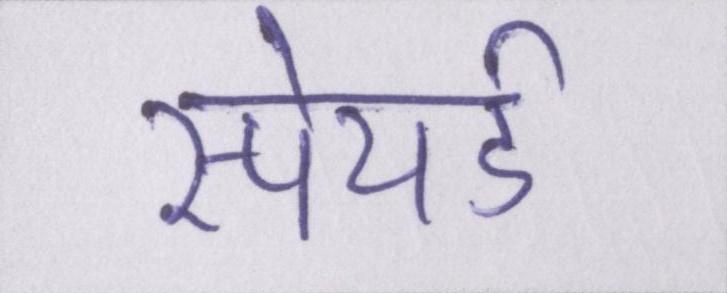 स्पेयर्ड